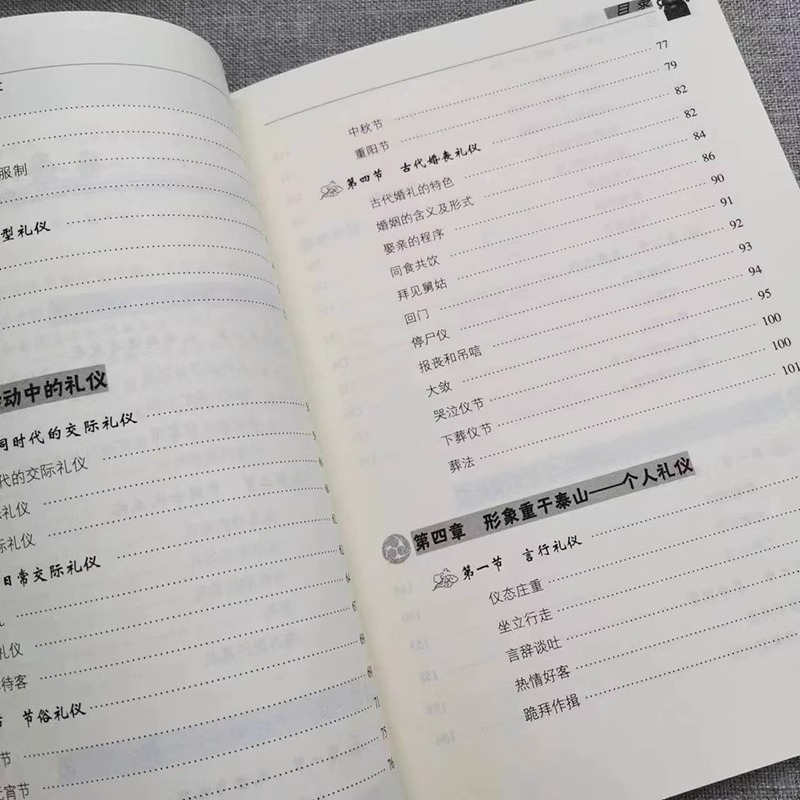 服制
型礼仪
动中的礼仪
同时代的交际礼仪
代的交际礼仪
礼仪
际礼仪
日常交际礼仪 62
64
礼仪 67
待客 68
节俗礼仪 69
节 75
宵节 76
目录
中秋节 77
重阳节 79
第四节 古代婚丧礼仪 82
古代婚礼的特色 82
婚姻的含义及形式 84
娶亲的程序 86
同食共饮 90
拜见舅姑 91
回门 92
停尸仪 93
报丧和吊唁 94
大敛 95
哭泣仪节 100
下葬仪节 100
葬法 101
第四章 形象重于泰山——个人礼仪
第一节 言行礼仪
仪态庄重
坐立行走
言辞谈吐
热情好客
跪拜作揖